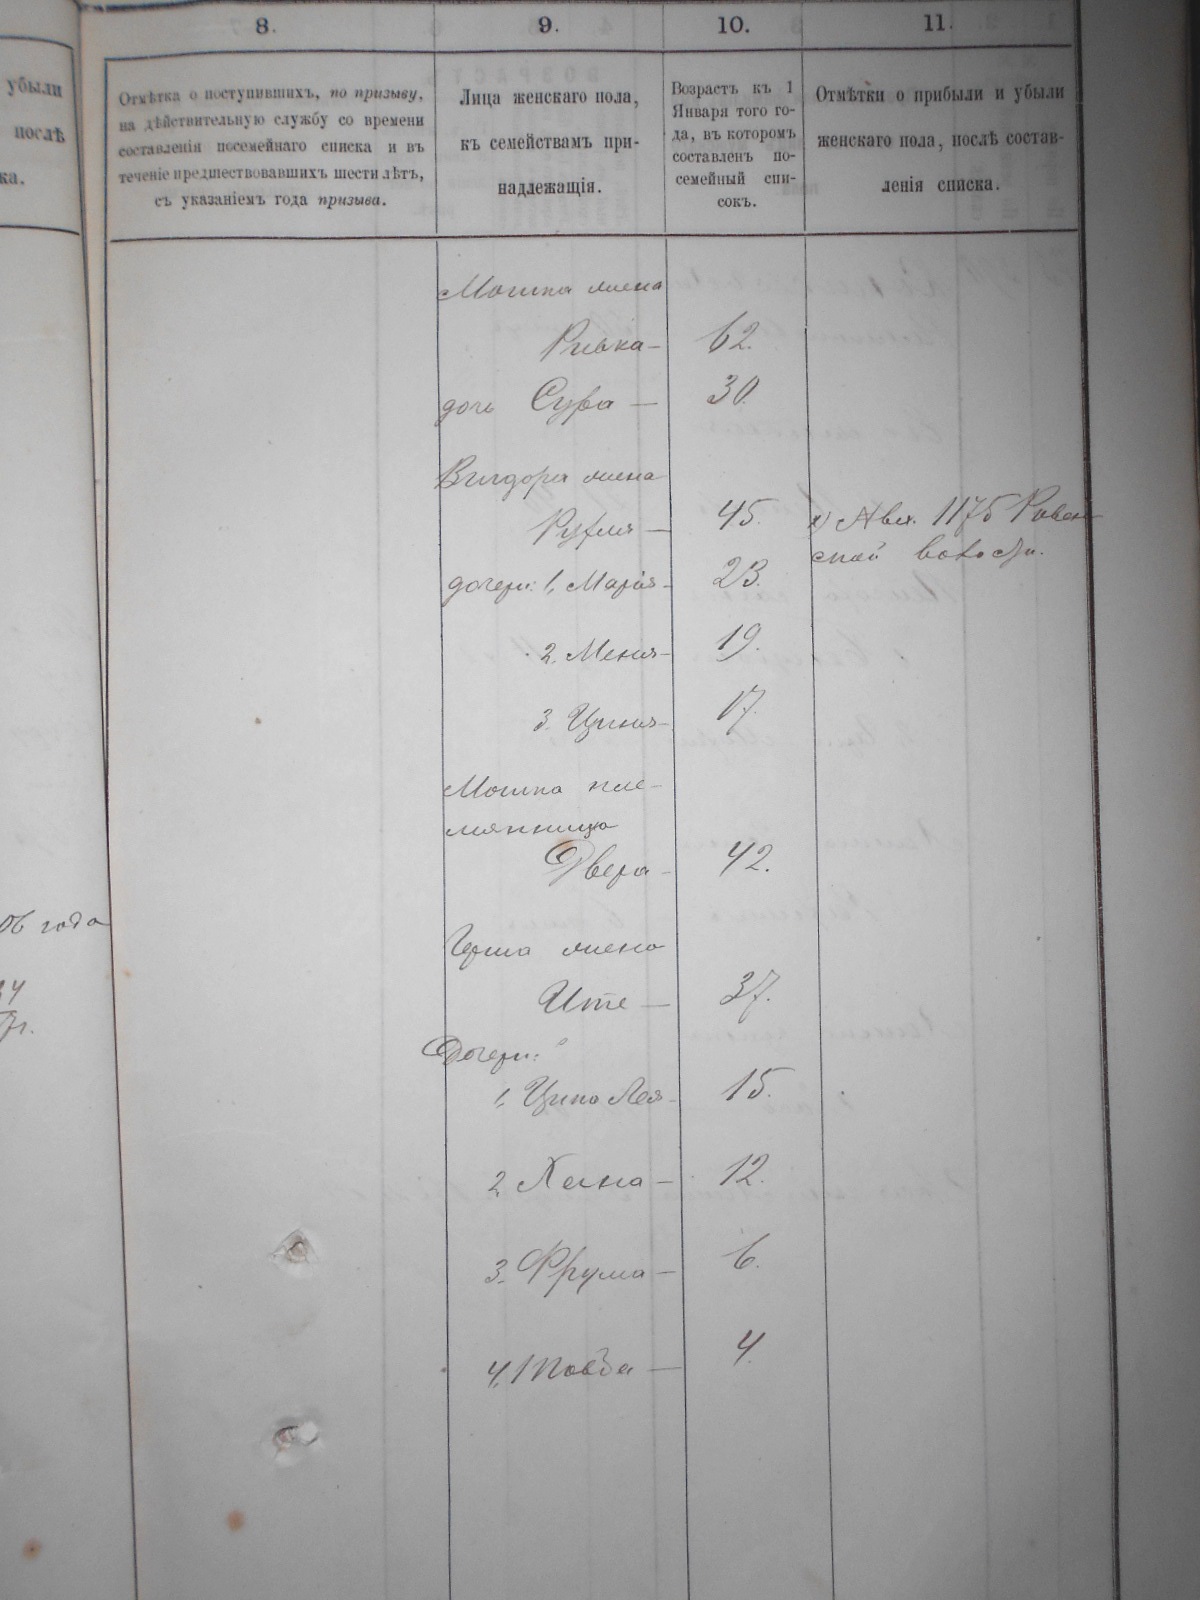 8.
9.
10.
11.
убыли
послѣ
ка.
Отмѣтка о поступившихъ, по призыву,
на дѣйствительную службу со времени
составленія посемейнаго списка и въ
теченіе предшествовавшихъ шести лѣтъ,
съ указаніемъ года призыва.
Лица женскаго пола,
къ семействамъ при-
надлежащія.
Возрастъ къ 1
Января того го-
да, въ которомъ
составленъ по-
семейный спи-
сокъ.
Отмѣтки о прибыли и убыли
женскаго пола, послѣ состав-
ленія списка.
Мошка жена
Ривка — 62.
дочь Сура — 30.
Вигдора жена
Рухля — 45.
дочери: 1, Марія — 23.
2. Меня — 19.
3. Ципя — 17.
Мошка пле-
мянница
Двера — 42.
Герша жена
Ите — 37.
Дочери:
1,Ципа Лея — 15.
2, Хасна — 12.
3. Фрума — 6.
4, — 4.
1175
волости.
06 года